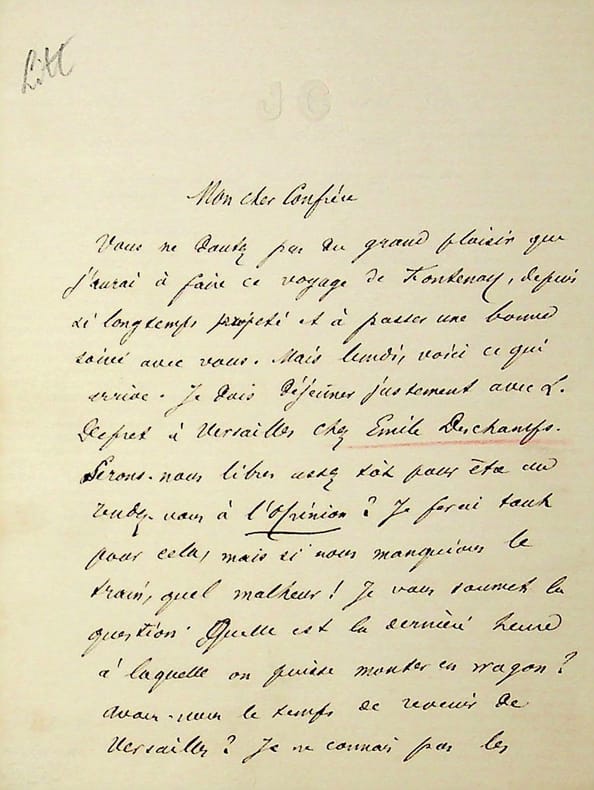 Litt
JC
Mon cher Confrère
Vous ne doutez pas du grand plaisir que
j'aurai à faire ce voyage de Fontenay, depuis
si longtemps projeté et à passer une bonne
soirée avec vous. Mais lundi, voici ce qui
arrive. Je dois déjeuner justement avec L.
Depret à Versailles chez Emile Deschamps.
Serons-nous libres assez tôt pour être au
rendez-vous à l'Opinion ? Je ferai tout
pour cela, mais si nous manquions le
train, quel malheur ! Je vous soumet la
question. Quelle est la dernière heure
à laquelle on puisse monter en wagon ?
avons-nous le temps de revenir de
Versailles ? Je ne connais pas les